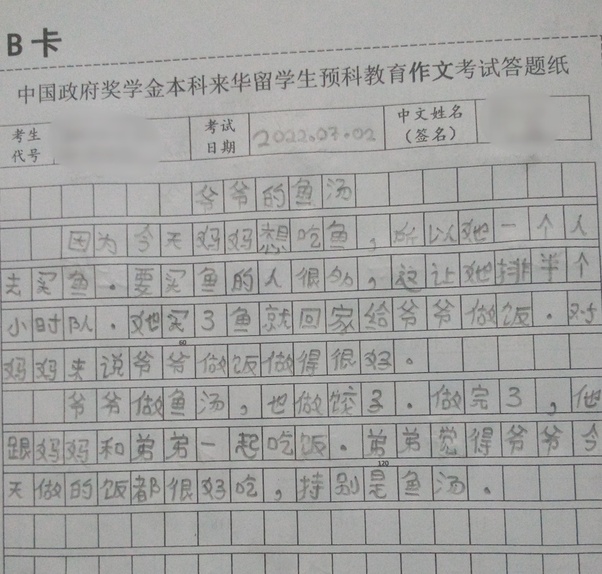 B卡
中国政府奖学金本科来华留学生预科教育作文考试答题纸
考生代号 考试日期 2022.07.02 中文姓名（签名）
爷爷的鱼汤
因为今天妈妈想吃鱼，所以她一个人
去买鱼．要买鱼的人很多，这让她排半个
小时队．她买了鱼就回家给爷爷做饭．对
60
妈妈来说爷爷做饭做得很好。
爷爷做鱼汤，也做饺子．做完了，他
跟妈妈和弟弟一起吃饭．弟弟觉得爷爷今
120
天做的饭都很好吃，持别是鱼汤．